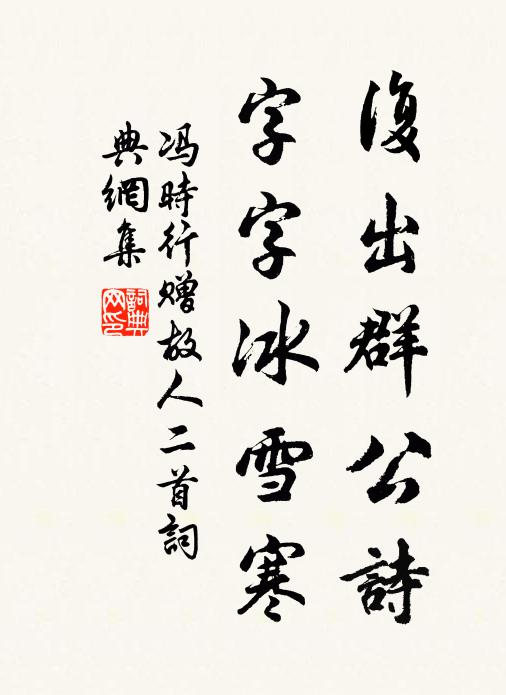 復出群公詩
字字冰雪寒
冯時行赠故人二首詞
典網集
詞典
网印